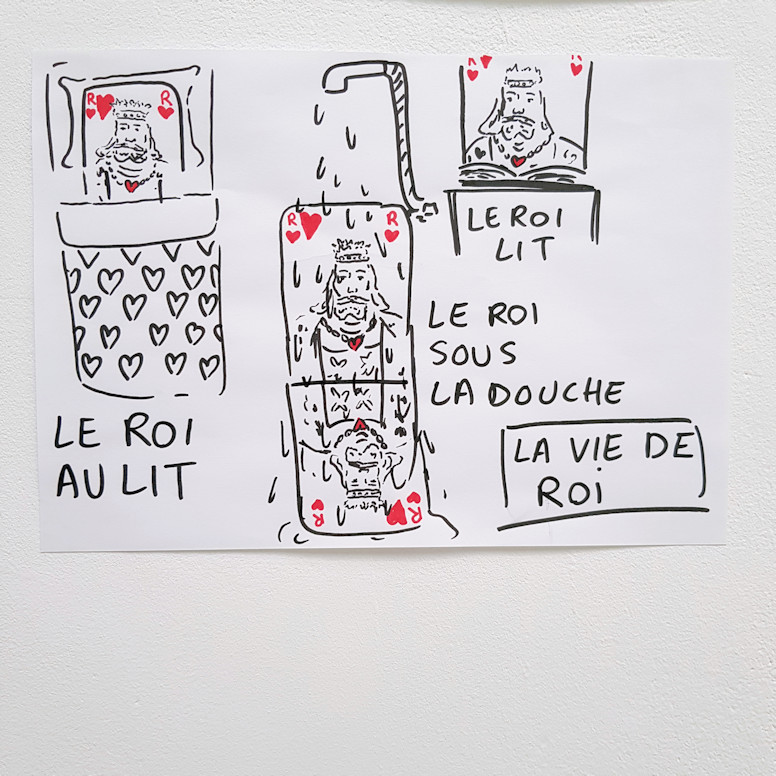 R R
LE ROI
AU LIT
R R
R R
LE ROI
SOUS
LA DOUCHE
R R
LE ROI
LIT
LA VIE DE
ROi